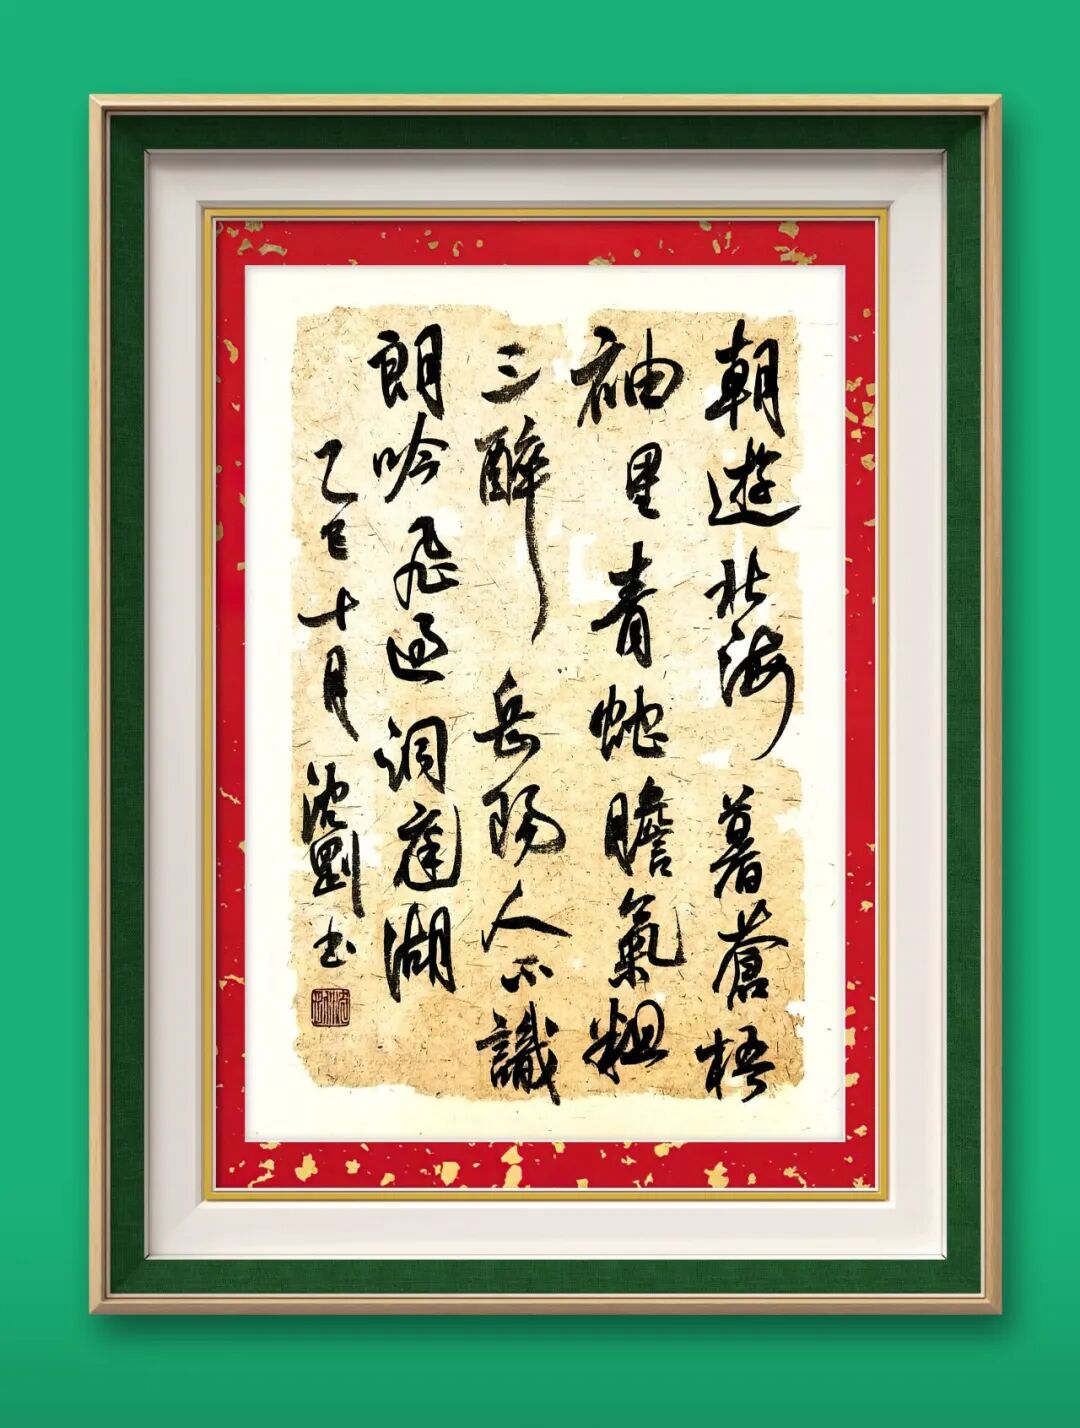 朝遊北海暮蒼梧
袖里青蛇膽氣粗
三醉岳陽人不識
朗吟飛過洞庭湖
乙巳十月沈劉书